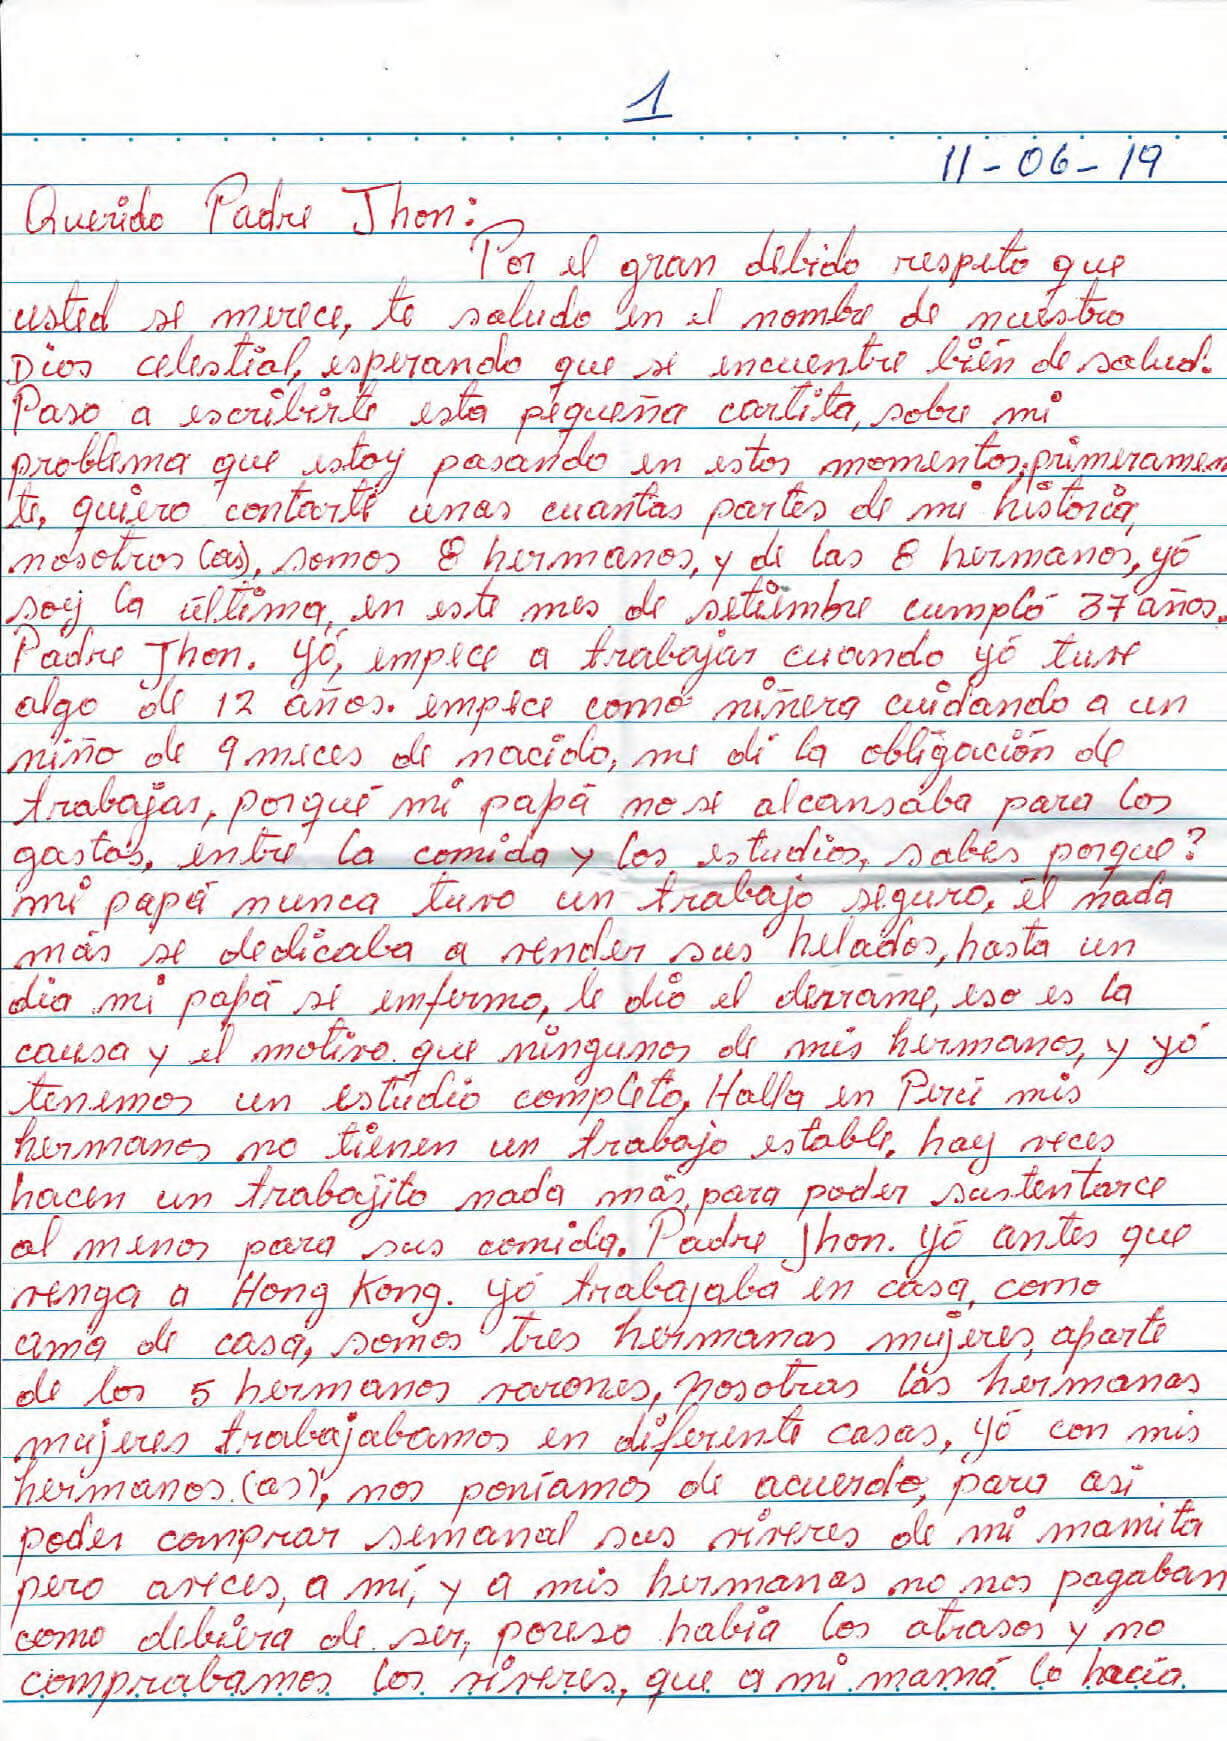 1
11-06-19
Querido Padre Jhon:
Por el gran debido respeto que
usted se merece, te saludo en el nombre de nuestro
Dios celestial, esperando que se encuentre bién de salud.
Paso a escribirte esta pequeña cartita, sobre mi
problema que estoy pasando en estos momentos, primeramen
te, quiero contarte unas cuantas partes de mi historia,
nosotros (as), somos 8 hermanos, y de las 8 hermanos, yó
soy la última, en este mes de setiembre cumpló 37 años.
Padre Jhon. Yó, empece a trabajar cuando yó tuve
algo de 12 años. empece como niñera cuidando a un
niño de 9 meces de nacido, me di la obligación de
trabajar, porqué mi papá no se alcansaba para los
gastos, entre la comida y los estudios, sabes porque?
mi papá nunca tuvo un trabajo seguro, él nada
más se dedicaba a vender sus helados, hasta un
dia mi papá se enfermo, le dio el derrame, eso es la
causa y el motivo que ningunos de mis hermanos, y yó
tenemos un estudio completo, Halla en Perú mis
hermanos no tienen un trabajo estable, hay veces
hacen un trabajito nada más, para poder sustentarce
al menos para sus comida. Padre Jhon. yó antes que
venga a Hong Kong. yó trabajaba en casa, como
ama de casa, somos tres hermanas mujeres, aparte
de los 5 hermanos varones, nosotras las hermanas
mujeres trabajabamos en diferente casas, yó con mis
hermanos (as), nos poníamos de acuerdo, para asi
poder comprar semanal sus viveres de mi mamita
pero aveces, a mí, y a mis hermanas no nos pagaban
como debiera de ser, poreso había los atrasos y no
comprabamos los viveres, que a mi mamá le hacía